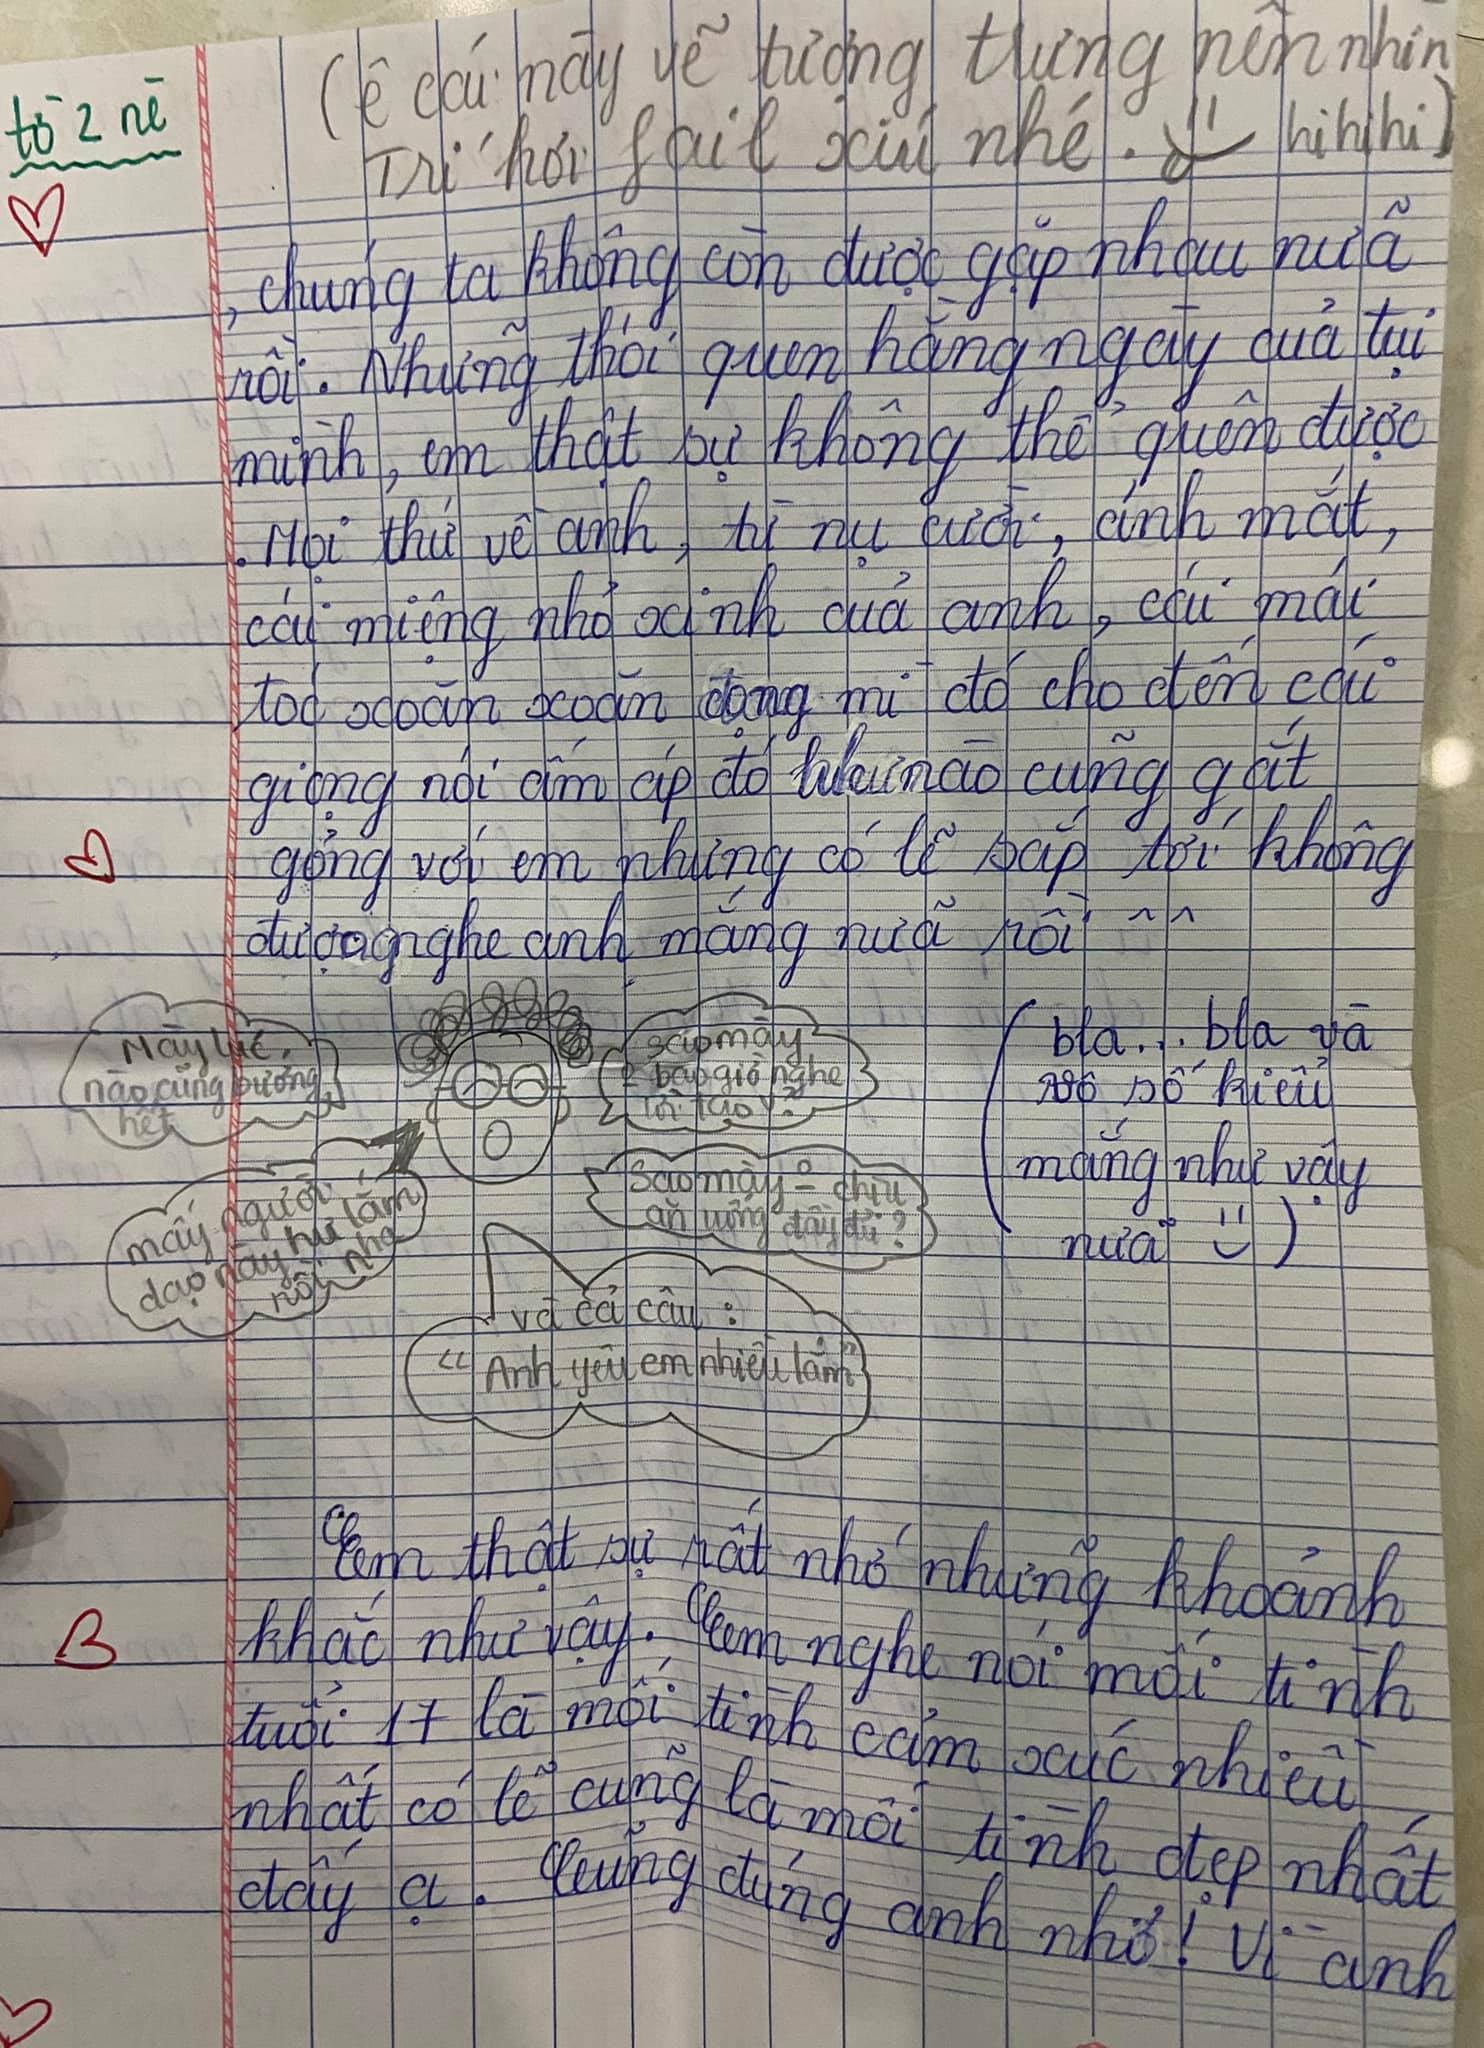 tờ 2 nè
(ê cái này vẽ tượng trưng nên nhìn
Trí hơi fail xíu nhé. hihihi)
, chúng ta không còn được gặp nhau nữa
rồi. Những thói quen hằng ngày của tụi
mình, em thật sự không thể quên được
. Mọi thứ về anh, từ nụ cười, ánh mắt,
cái miệng nhỏ xinh của anh, cái mái
tóc xoăn xoăn cọng mì đó cho đến cái
giọng nói ấm áp đó lúc nào cũng gắt
gỏng với em nhưng có lẽ sắp tới không
được nghe anh mắng nữa rồi ^^
Mày lúc
nào cũng bướng
hết
sao mày
0 bao giờ nghe
lời tao v?
mấy người
dạo này hư lắm
rồi nha
Sao mày 0 chịu
ăn uống đầy đủ?
và cả câu:
"Anh yêu em nhiều lắm"
(bla... bla và
vô số kiểu
mắng như vậy
nữa )
Em thật sự rất nhớ những khoảnh
khắc như vậy. Em nghe nói mối tình
tuổi 17 là mối tình cảm xúc nhiều
nhất có lẽ cũng là mối tình đẹp nhất
đấy ạ. Cũng đúng anh nhở! Vì anh